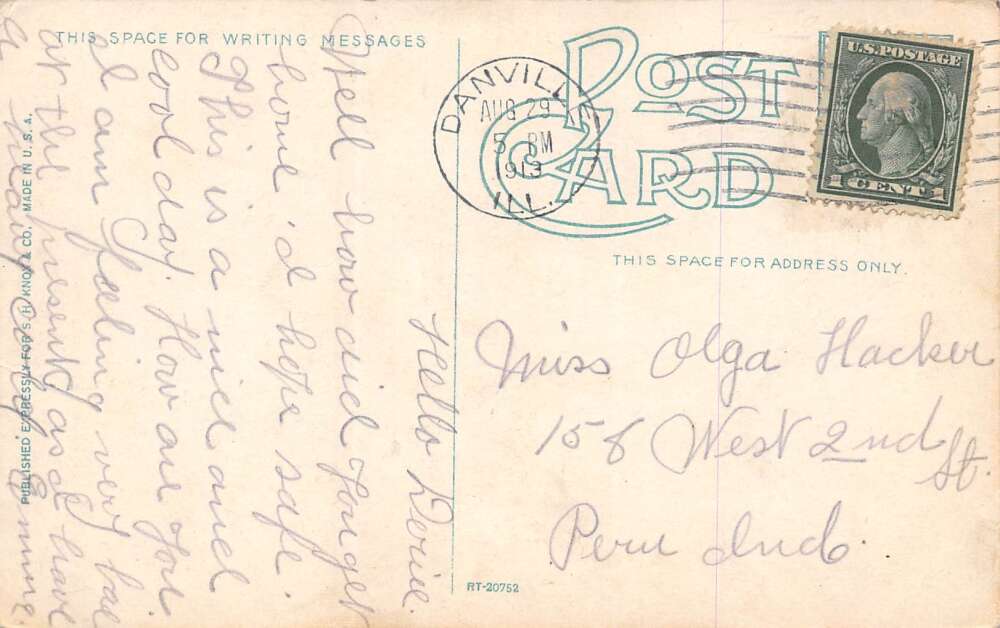 THIS SPACE FOR WRITING MESSAGES
POST CARD
THIS SPACE FOR ADDRESS ONLY.
DANVILLE
AUG 29
5 PM
1913
ILL.
U.S. POSTAGE
1 CENT 1
Miss Olga Hacker
158 West 2nd St.
Peru Ind.
Hello
Well how did you get
home I hope safe.
This is a nice and
cool day. How are you
I am feeling very bad
at the present as I have
a
PUBLISHED EXPRESSLY FOR S. H. KNOX & CO. MADE IN U. S. A.
RT-20752